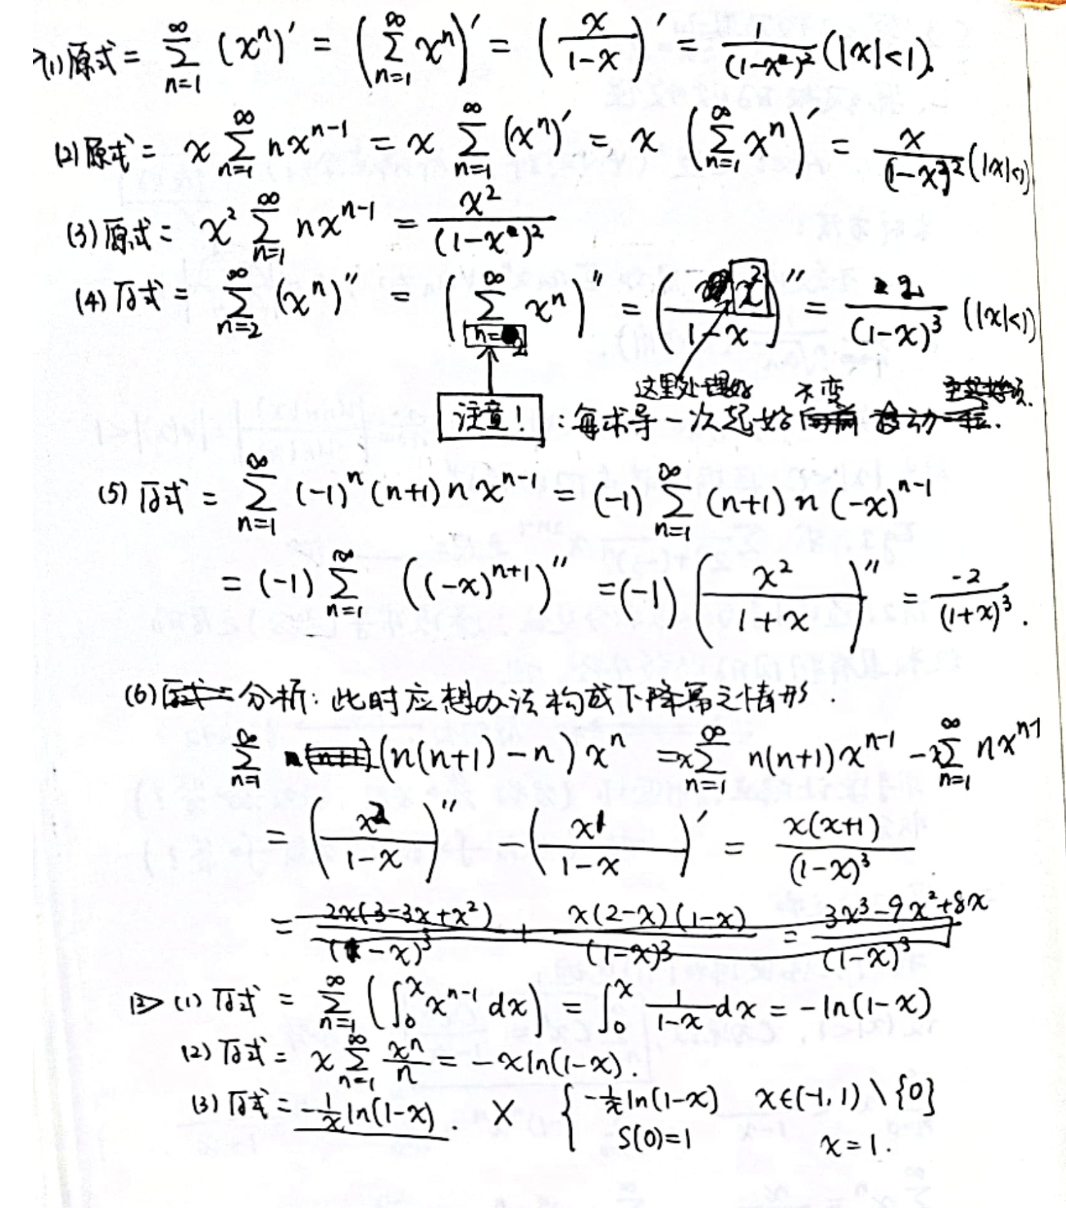 (1) 原式 = \sum_{n=1}^{\infty} (x^n)' = (\sum_{n=1}^{\infty} x^n)' = (\frac{x}{1-x})' = \frac{1}{(1-x)^2} (|x|<1).
(2) 原式 = x \sum_{n=1}^{\infty} nx^{n-1} = x \sum_{n=1}^{\infty} (x^n)' = x (\sum_{n=1}^{\infty} x^n)' = \frac{x}{(1-x)^2} (|x|<1)
(3) 原式 = x^2 \sum_{n=1}^{\infty} nx^{n-1} = \frac{x^2}{(1-x)^2}
(4) 原式 = \sum_{n=2}^{\infty} (x^n)'' = (\sum_{n=2}^{\infty} x^n)'' = (\frac{x^2}{1-x})'' = \frac{2}{(1-x)^3} (|x|<1)
这里处理好 不变
注意! : 每求导一次起始
(5) 原式 = \sum_{n=1}^{\infty} (-1)^n (n+1) n x^{n-1} = (-1) \sum_{n=1}^{\infty} (n+1) n (-x)^{n-1}
= (-1) \sum_{n=1}^{\infty} ((-x)^{n+1})'' = (-1) (\frac{x^2}{1+x})'' = \frac{-2}{(1+x)^3}.
(6) 分析: 此时应想办法构成下降幂之情形.
\sum_{n=1}^{\infty} (n(n+1)-n) x^n = x\sum_{n=1}^{\infty} n(n+1) x^{n-1} - x\sum_{n=1}^{\infty} nx^{n-1}
= (\frac{x^2}{1-x})'' - (\frac{x}{1-x})' = \frac{x(x+1)}{(1-x)^3}
= \frac{2x(3-3x+x^2)}{(1-x)^3} + \frac{x(2-x)(1-x)}{(1-x)^3} = \frac{3x^3-9x^2+8x}{(1-x)^3}
13> (1) 原式 = \sum_{n=1}^{\infty} (\int_0^x x^{n-1} dx) = \int_0^x \frac{1}{1-x} dx = -ln(1-x)
(2) 原式 = x \sum_{n=1}^{\infty} \frac{x^n}{n} = -xln(1-x).
(3) 原式 = -\frac{1}{x} ln(1-x). X { -\frac{1}{x} ln(1-x) x∈(-1,1) \ {0}
S(0)=1 x=1.